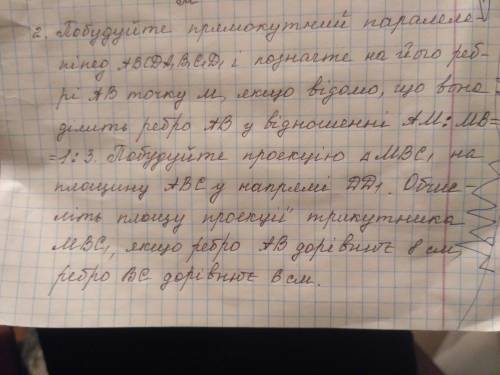 2. Побудуйте прямокутний паралеле-
піпед ABCDA₁B₁C₁D₁ і позначте на його реб-
рі AB точку M, якщо відомо, що вона
ділить ребро AB у відношенні AM:MB=
=1:3. Побудуйте проекцію △MBC₁ на
площину ABC у напрямі DD₁. Обчис-
літь площу проєкції трикутника
MBC₁, якщо ребро AB дорівнює 8 см,
ребро BC дорівнює 6 см.